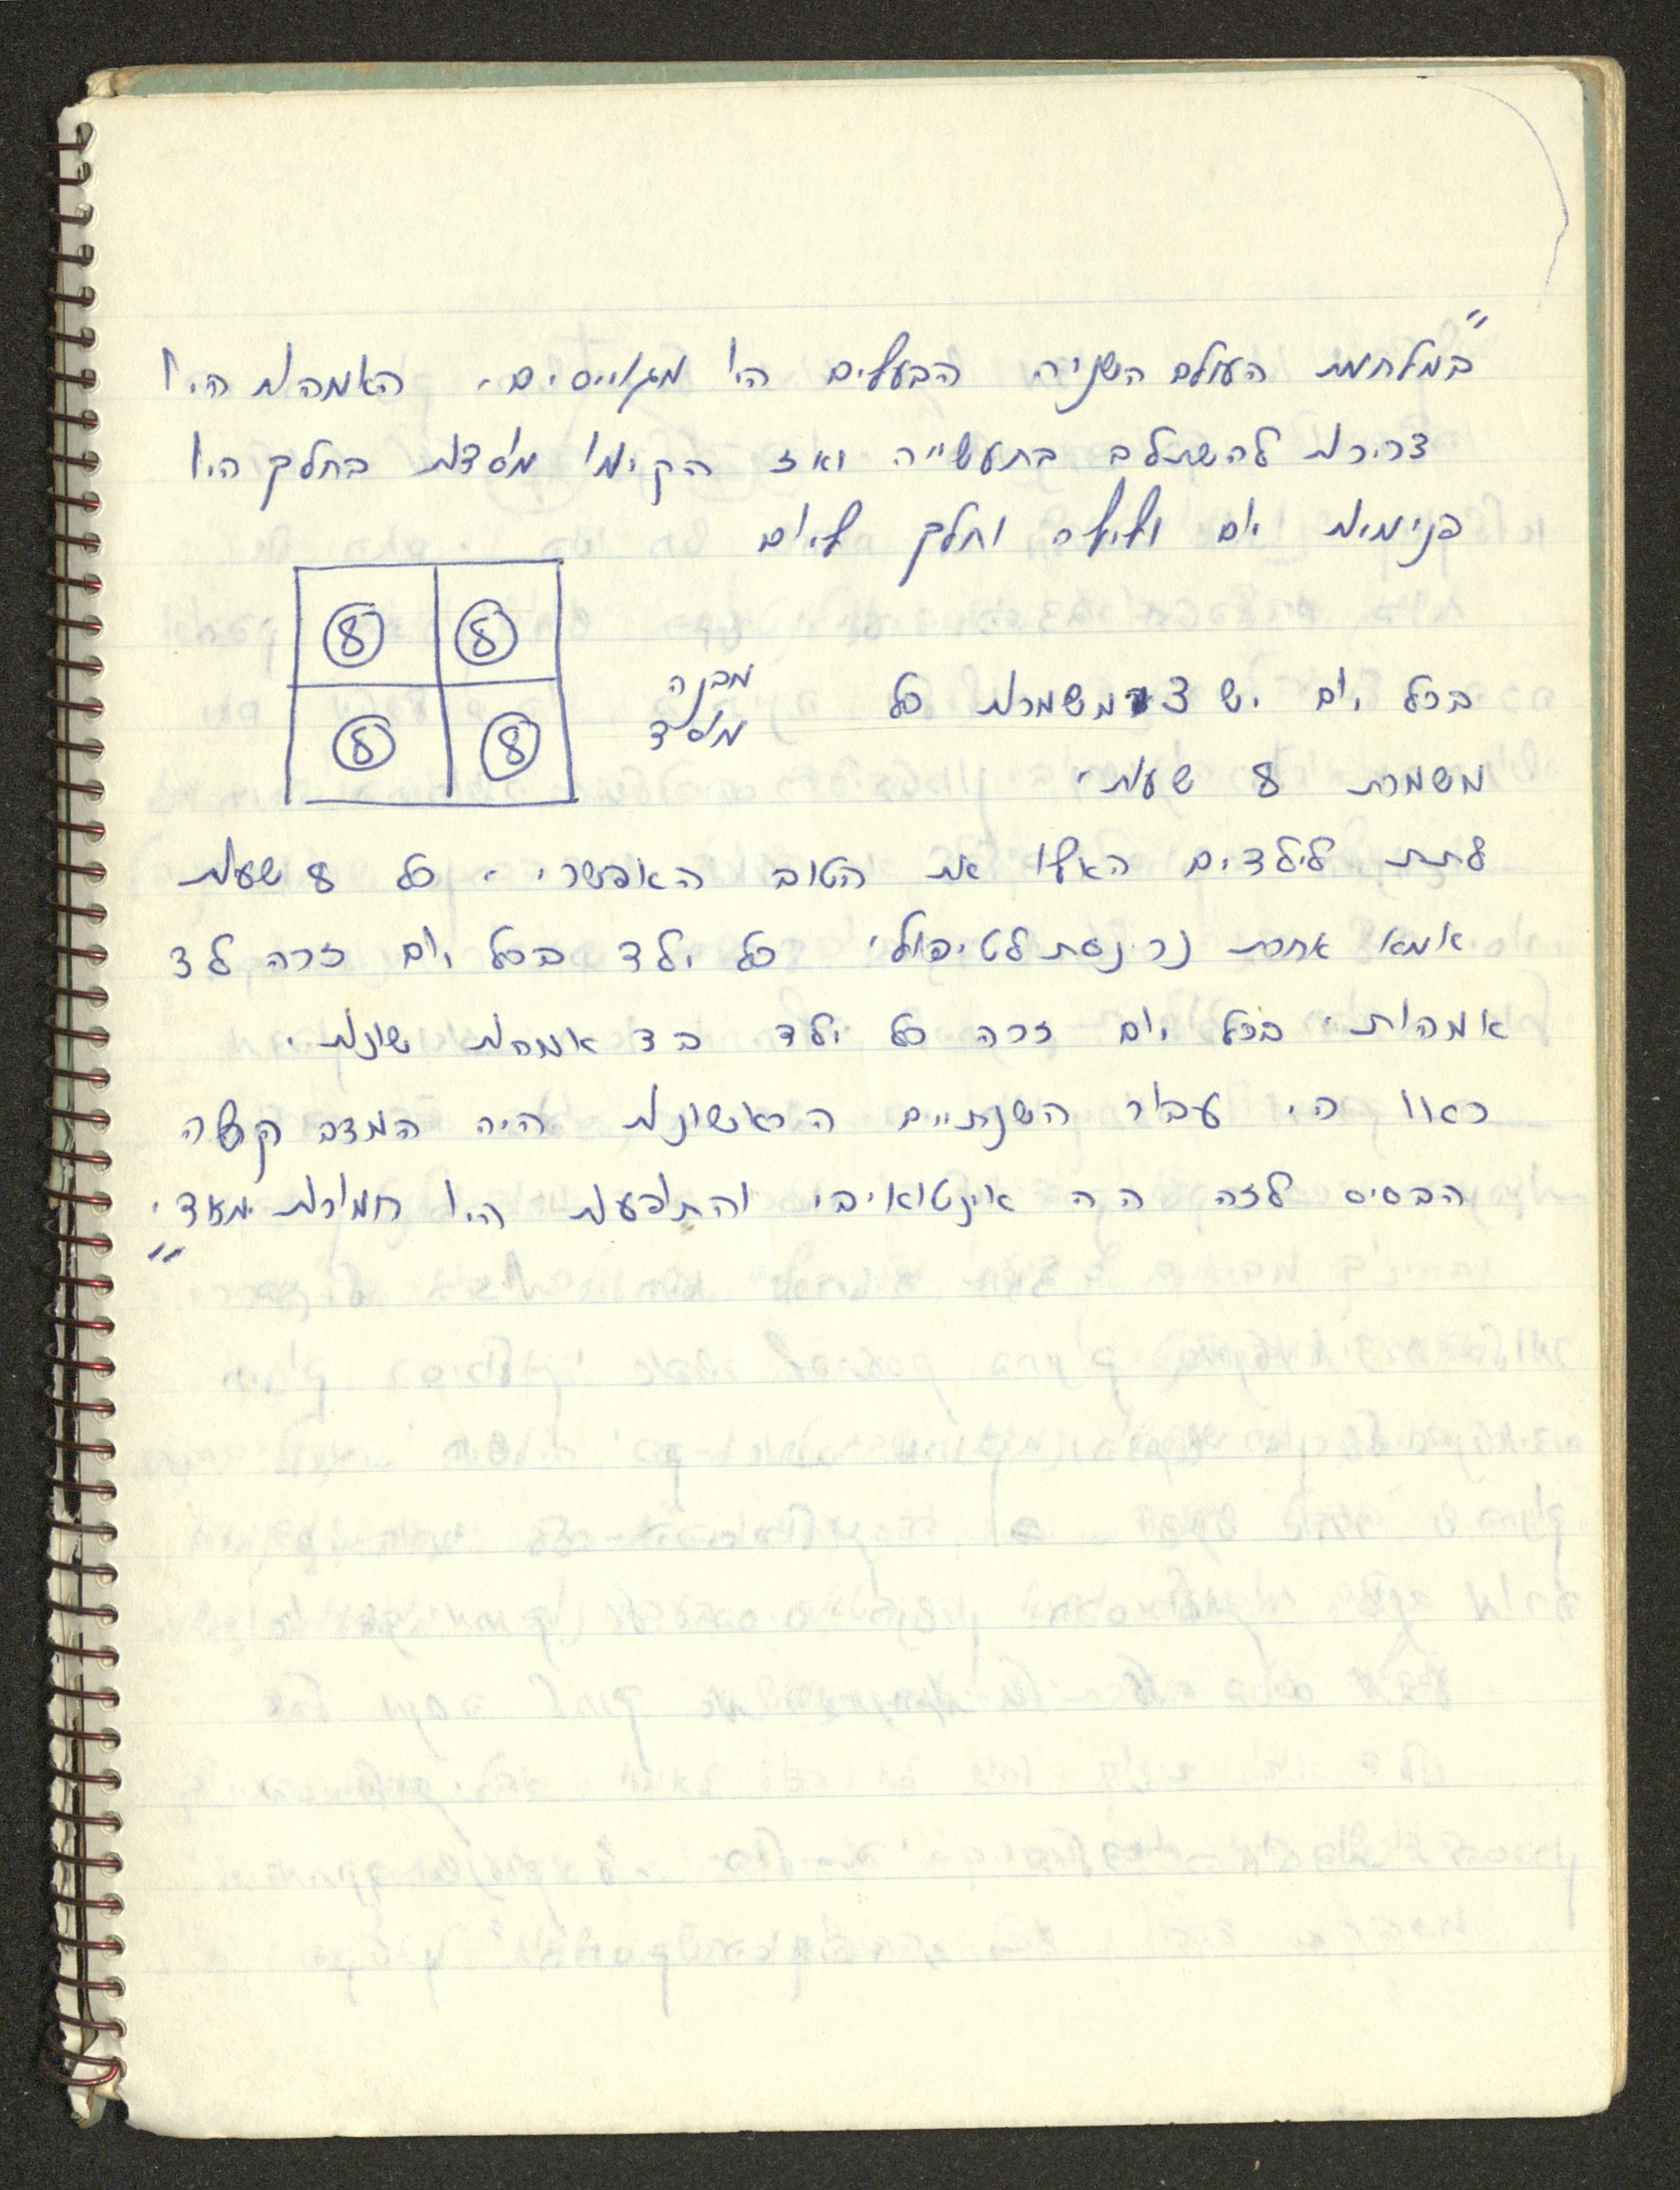 "במלחמת העולם השניה הבעלים היו מגוייסים. האמהות היו
צריכות להשתלב בתעשייה ואז הקימו מוסדות בחלקן היו
פנימיות יום ולילה וחלקן ליום
8 8
8 8
מבנה
מוסד
בכל יום יש 3 משמרות כל
משמרת 8 שעות.
לתת לילדים האלו את הטוב האפשרי. כל 8 שעות
אמא אחרת נכנסת לטיפול. כל ילד בכל יום זכה ל 3
אמהות. בכל יום זכה כל ילד ב 3 אמהות שונות.
ראו כי עבור השנתיים הראשונות היה המצב קשה
הבסיס לזה היה אינטואיבי והתופעות היו חמורות מאד."